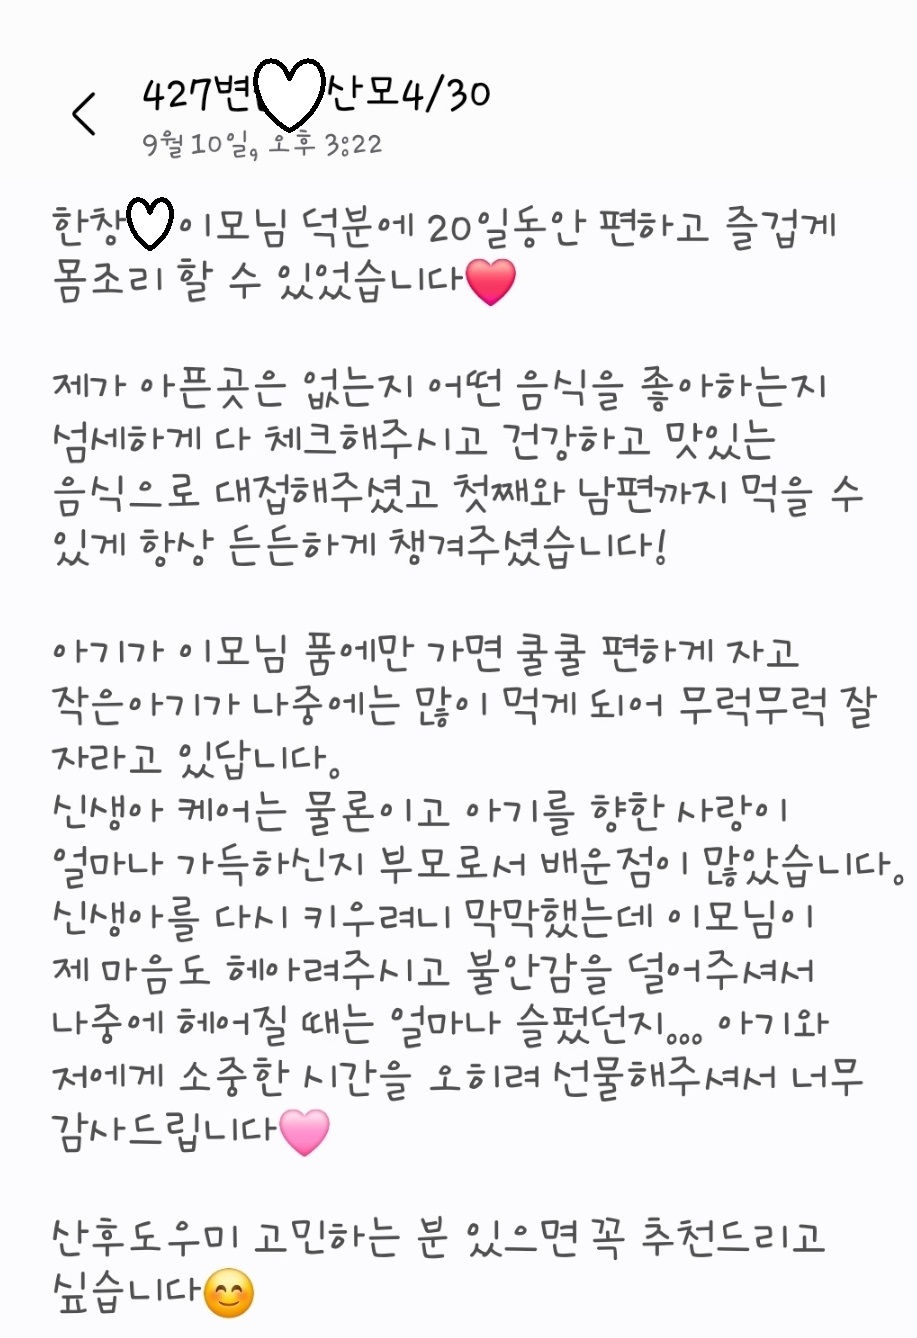 427변 산모4/30
9월 10일, 오후 3:22
한창 이모님 덕분에 20일동안 편하고 즐겁게
몸조리 할 수 있었습니다
제가 아픈곳은 없는지 어떤 음식을 좋아하는지
섬세하게 다 체크해주시고 건강하고 맛있는
음식으로 대접해주셨고 첫째와 남편까지 먹을 수
있게 항상 든든하게 챙겨주셨습니다!
아기가 이모님 품에만 가면 쿨쿨 편하게 자고
작은아기가 나중에는 많이 먹게 되어 무럭무럭 잘
자라고 있답니다.
신생아 케어는 물론이고 아기를 향한 사랑이
얼마나 가득하신지 부모로서 배운점이 많았습니다.
신생아를 다시 키우려니 막막했는데 이모님이
제 마음도 헤아려주시고 불안감을 덜어주셔서
나중에 헤어질 때는 얼마나 슬펐던지... 아기와
저에게 소중한 시간을 오히려 선물해주셔서 너무
감사드립니다
산후도우미 고민하는 분 있으면 꼭 추천드리고
싶습니다